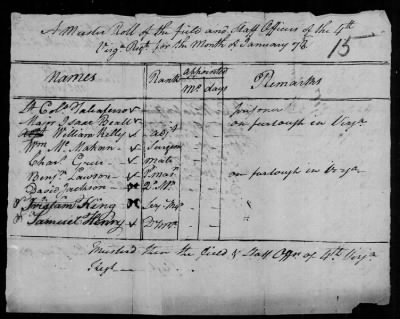 A Muster Roll of the field and Staff Officers of the 4th
Virga Regt for the Month of January 78 15
Names Rank appointed Remarks
mo days
Lt Colo Taliaferro prisoner
Major Isaac Beall x on furlough in Virga
William Kelly x adjt
Wm Mc Mahan x Surgeon
Charl Greer x mate
Benj Lawson x P. mas on furlough in Virga
David Jackson x Q. Mr
King x Serj. Maj
Samuel Henry x D. M
Mustered then the field & Staff Offrs of 4th Virga
Regt